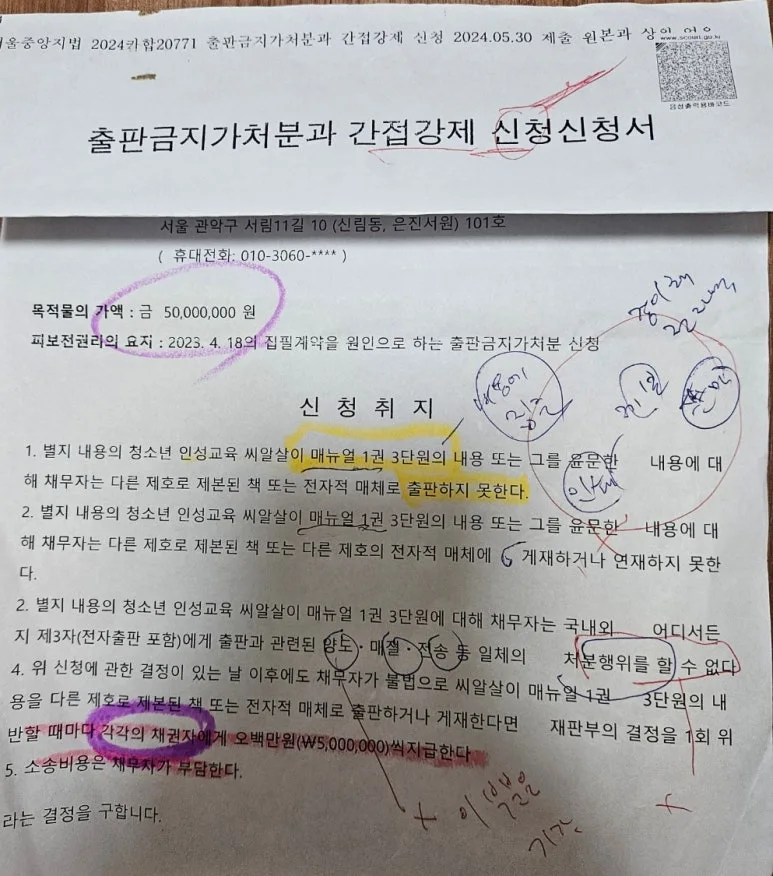 서울중앙지법 2024카합20771 출판금지가처분과 간접강제 신청 2024.05.30 제출 원본과 상이 없음
www.scourt.go.kr
음성출력용바코드
출판금지가처분과 간접강제 신청신청서
서울 관악구 서림11길 10 (신림동, 은진서원) 101호
( 휴대전화: 010-3060-**** )
목적물의 가액 : 금 50,000,000 원
피보전권리의 요지 : 2023. 4. 18의 집필계약을 원인으로 하는 출판금지가처분 신청
신 청 취 지
1. 별지 내용의 청소년 인성교육 씨알살이 매뉴얼 1권 3단원의 내용 또는 그를 윤문한 내용에 대
해 채무자는 다른 제호로 제본된 책 또는 전자적 매체로 출판하지 못한다.
2. 별지 내용의 청소년 인성교육 씨알살이 매뉴얼 1권 3단원의 내용 또는 그를 윤문한 내용에 대
해 채무자는 다른 제호로 제본된 책 또는 다른 제호의 전자적 매체에 게재하거나 연재하지 못한
다.
2. 별지 내용의 청소년 인성교육 씨알살이 매뉴얼 1권 3단원에 대해 채무자는 국내외 어디서든
지 제3자(전자출판 포함)에게 출판과 관련된 양도·매절·전송 등 일체의 처분행위를 할 수 없다
4. 위 신청에 관한 결정이 있는 날 이후에도 채무자가 불법으로 씨알살이 매뉴얼 1권 3단원의 내
용을 다른 제호로 제본된 책 또는 전자적 매체로 출판하거나 게재한다면 재판부의 결정을 1회 위
반할 때마다 각각의 채권자에게 오백만원(₩5,000,000)씩지급한다
5. 소송비용은 채무자가 부담한다.
라는 결정을 구합니다.